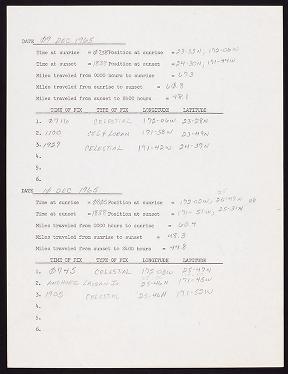 DATE 09 DEC 1965
Time at sunrise = 0738 Position at sunrise = 23-33N, 172-06W
Time at sunset = 1838 Position at sunset = 24-30N, 171-44W
Miles traveled from 0000 hours to sunrise = 67.3
Miles traveled from sunrise to sunset = 60.8
Miles traveled from sunset to 2400 hours = 48.1
TIME OF FIX TYPE OF FIX LONGITUDE LATITUDE
1. 0716 CELESTIAL 172-06W 23-28N
2. 1100 CEL & LORAN 171-58W 23-49N
3. 1927 CELESTIAL 171-42W 24-37N
4.
5.
6.
DATE 10 DEC 1965
Time at sunrise = Position at sunrise = 172-02W,
Time at sunset = 1838 Position at sunset = 171-51W, 25-31N
Miles traveled from 0000 hours to sunrise = 60.4
Miles traveled from sunrise to sunset = 48.3
Miles traveled from sunset to 2400 hours = 44.8
TIME OF FIX TYPE OF FIX LONGITUDE LATITUDE
1. 0745 CELESTIAL 172-02W 25-47N
2. ANCHORED LAYSAN Is 25-46N 171-45W
3. 1905 CELESTIAL 25-46N 171-52W
4.
5.
6.